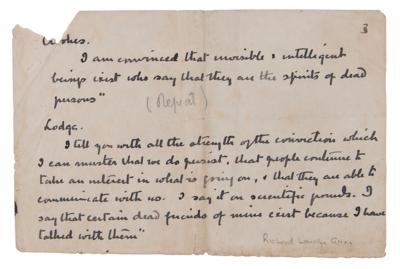 3
Crookes.
I am convinced that invisible & intelligent
beings exist who say that they are the spirits of dead
persons"
(Repeat)
Lodge.
I tell you with all the strength of the conviction which
I can muster that we do persist, that people continue to
take an interest in what is going on, & that they are able to
communicate with us. I say it on scientific grounds. I
say that certain dead friends of mine exist because I have
talked with them"